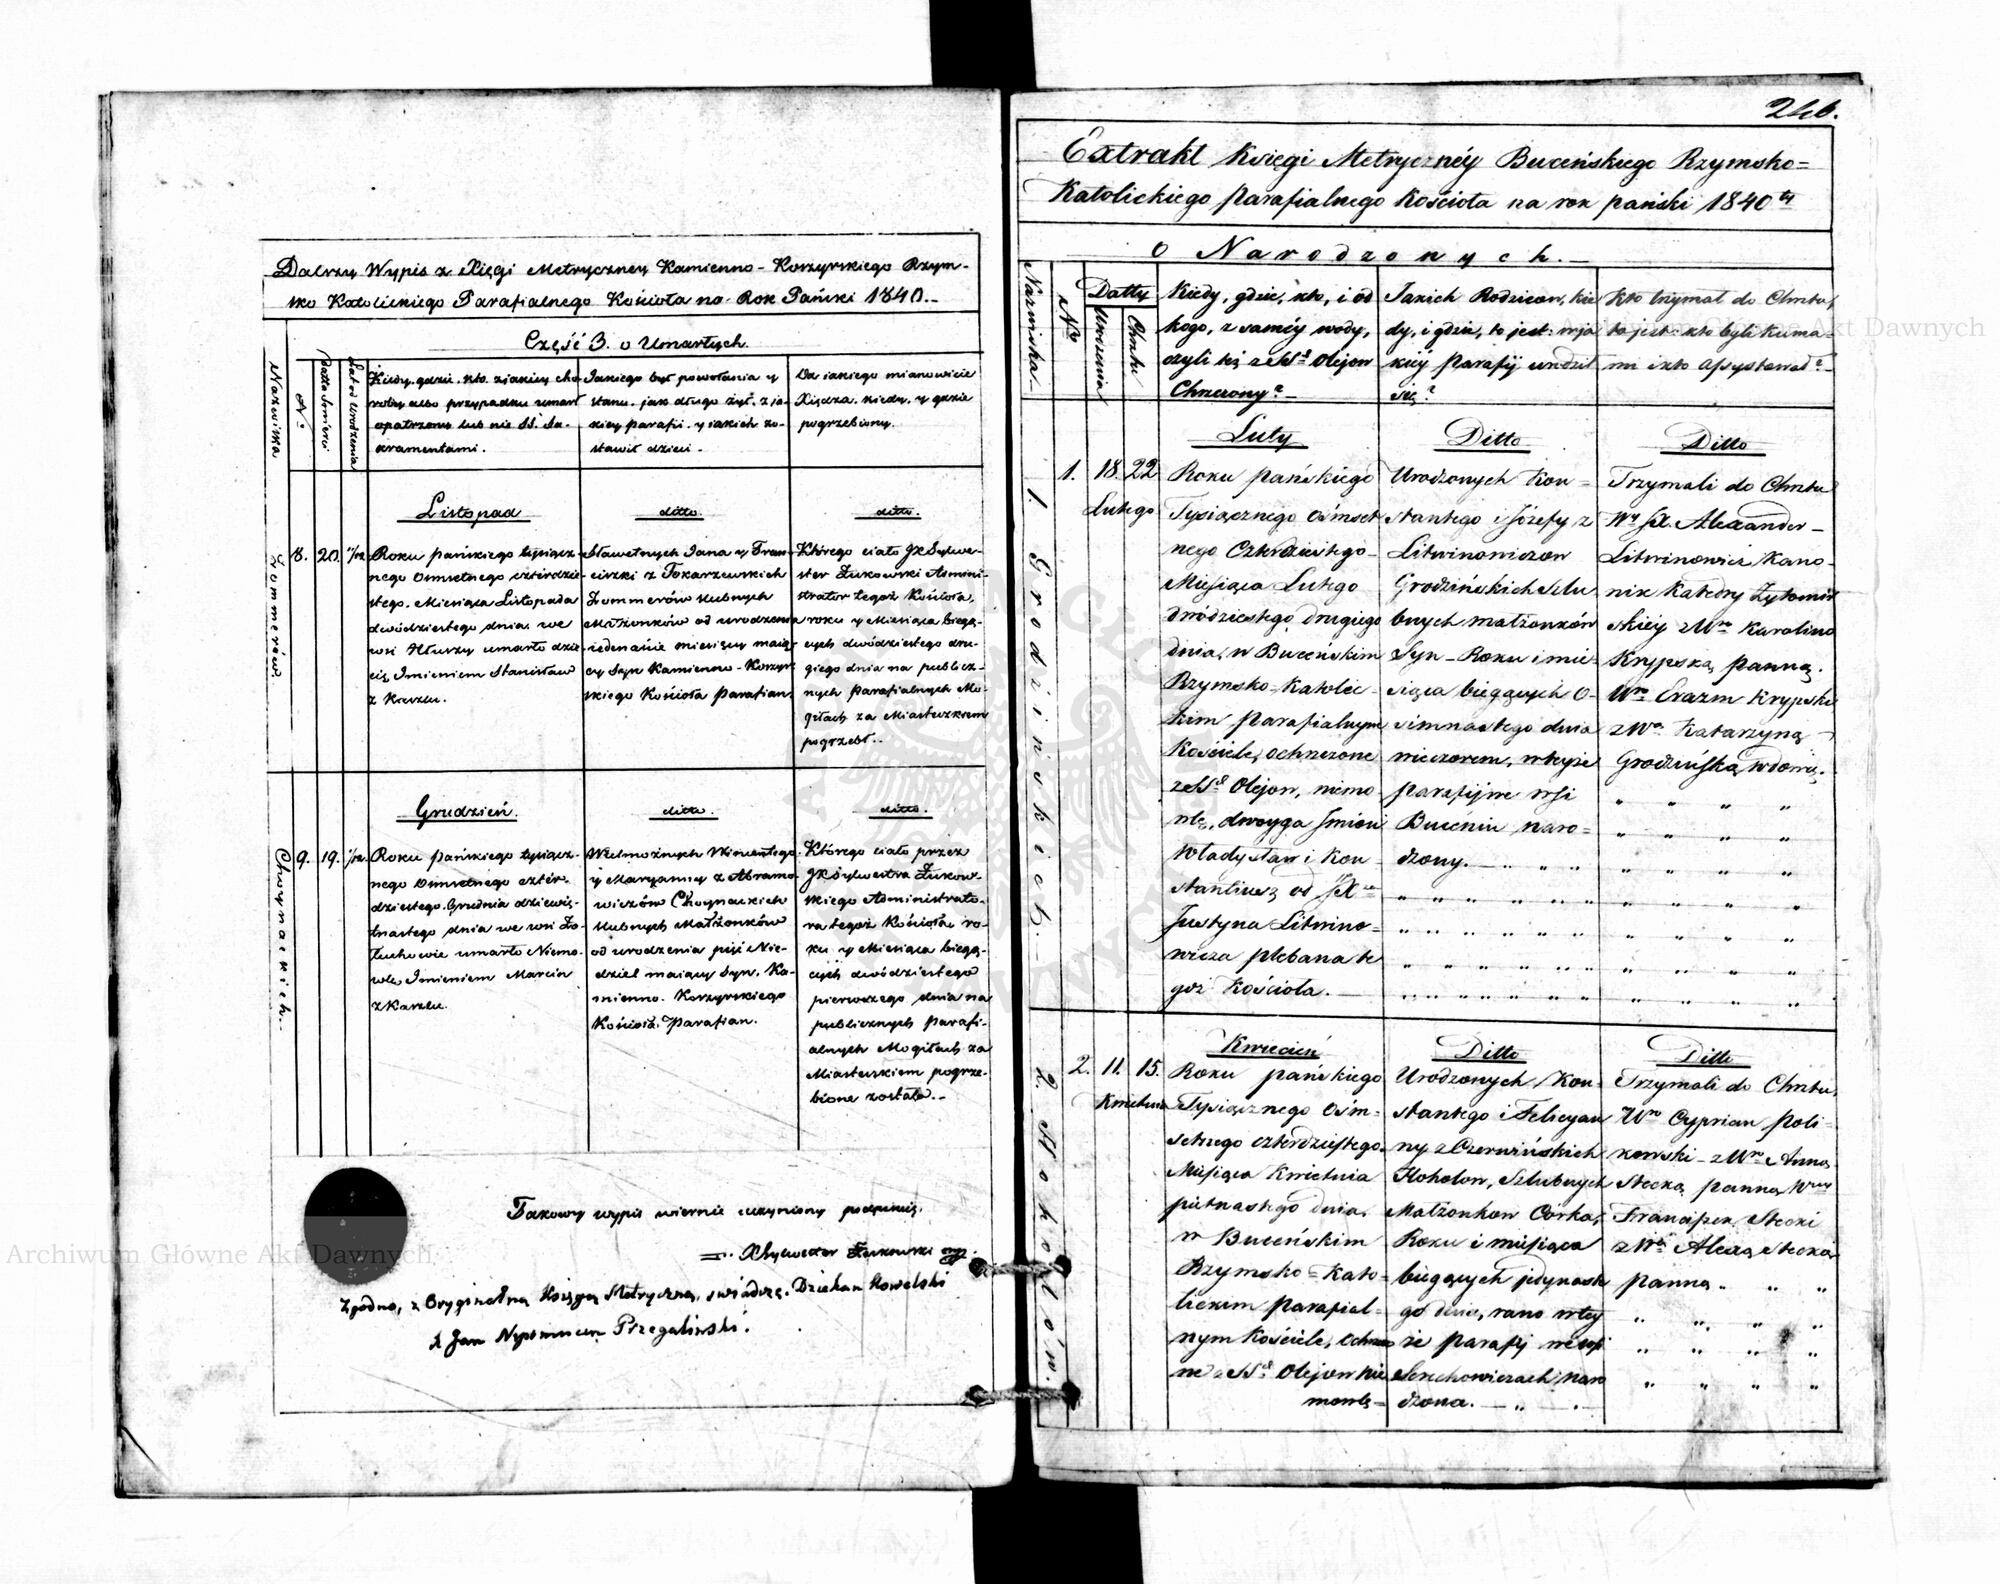 Dalszy Wypis z Xięgi Metryczney Kamienno-Koszyrskiego Rzym-
sko Katolickiego Parafialnego Kościoła na Rok Pański 1840.-
Część 3. o Umarłych.
Nazwiska
N°
Datta Smierci
Lat od Urodzenia
Kiedy, gdzie, kto, z jakiey cho-
roby albo przypadku umarł
opatrzony lub nie SS. Sa-
kramentami.
Jakiego był powołania y
stanu, jak długo żył, z ja-
kiey parafii, y jakich zo-
stawił dzieci.
Da jakiego mianowicie
Xiędza, kiedy, y gdzie
pogrzebiony.
Listopad
ditto.
ditto.
Zommerów.
8. 20. 11/12
Roku pańskiego tysiącz-
nego osmsetnego czterdzie-
stego, Miesiąca Listopada
dwódziestego dnia, we
wsi umarło dzie-
cię Imieniem Stanisław
z Kaszlu.
Sławetnych Jana y Fran-
ciszki z Tokarzewskich
Zommerów slubnych
Małżonków od urodzenia
iedenaście miesięcy maią-
cy Syn Kamienno-Koszyr-
skiego Kościoła parafian.
Którego ciało JX Sylwe-
ster Żukowski Admini-
strator tegoż Kościoła,
roku y Miesiąca bieżą-
cych dwódziestego dru-
giego dnia na publicz-
nych parafialnych Mo-
giłach za Miasteczkiem
pogrzebł..
Grudzień.
ditto.
ditto.
Choynackich.
9. 19. 1/12
Roku pańskiego tysiącz-
nego osmsetnego czter-
dziestego, Grudnia dziewię-
tnastego dnia we wsi Zo-
łuchowie umarło Niemo-
wle Imieniem Marcin
z Kaszlu.
Wielmożnych Wincentego
y Maryanny z Abramo-
wiczów Choynackich
slubnych Małżonków
od urodzenia pięć Nie-
dziel maiący Syn, Ka-
mienno-Koszyrskiego
Kościoła Parafian.
Którego ciało przez
JX Sylwestra Żukow-
skiego Administrato-
ra tegoż Kościoła ro-
ku y Miesiąca bieżą-
cych dwódziestego
pierwszego dnia na
publicznych parafi-
alnych Mogiłach za
Miasteczkiem pogrze-
bione zostało.-
Takowy wypis wiernie uczyniony podpisuię.
X Sylwester Żukowski
Zgodno, z Oryginalną Księgą Metryczną, świadczę. Dziekan Kowelski
X Jan Nepomucen Przegaliński.
246.
Extrakt Księgi Metrycznéy Buceńskiego Rzymsko=
Katolickiego parafialnego Kościoła na rok pański 1840ty
O Narodzonych.-
Nazwiska
N°
Datty
Urodzenia
Chrztu
Kiedy, gdzie, kto, i od
kogo, z saméy wody,
czyli też z SS° Olejow
Chrzczony?-
Jakich Rodzicow, kie
dy, i gdzie, to jest: w ja
kiéy parafij urodził
się?
Kto trzymał do Chrztu,
to jest: kto byli kuma-
mi i kto Assystował?-
Luty
Ditto
Ditto
1. Grodzinskich
1. 18. 22
Lutego
Roku pańskiego
Tysiącznego Ośmset
nego Czterdziestego
Miesiąca Lutego
dródziestego drugiego
dnia, w Buceńskim
Rzymsko=Katolic-
kim parafialnym
Kościele, ochrzczone
z SS° Olejow, niemo
wlę, dwoyga Imion
Władysław i Kon-
stantius, od JX
Justyna Litwino-
wicza plebana te
goż Kościoła.-
Urodzonych Kon=
stantego i Józefy z
Litwinowiczow
Grodzińskich slu
bnych małżonków
Syn- Roku i mie
siąca bieżących o-
simnastego dnia
wieczorem, w teyże
parafijie wsi
Buceniu naro=
dzony.
Trzymali do Chrztu
Wy JX. Alexander-
Litwinowicz Kano-
nik Katedry Żytomir
skiéy z Wną Karoliną
Krypską, panną.
Wny Erazm Krypski
z Wną Katarzyną
Grodzińską Wdową.
Kwiecień
Ditto
Ditto
2. Hoholów.
2. 11. 15.
Kwietnia
Roku pańskiego
Tysiącznego Ośm-
setnego czterdziestego
Miesiąca Kwietnia
pietnastego dnia,
w Buceńskim
Rzymsko=Kato=
lickim parafial=
nym Kościele, ochrzczo
ne z SS° Olejow nie
mowlę=
Urodzonych Kon-
stantego i Felicyan
ny z Czerwińskich
Hoholow, Szlubnych
Małżonkow Córka,
Roku i miesiąca
bieżących jedynaste
go dnia, rano w tey
że parafij we wsi
Serechowiczach, naro
dzona.
Trzymali do Chrztu,
Wny Cyprian Poli-
kowski z Wną Anną
Stecką panną, Wny
Franciszek Stecki
z Wną Alexą Stecką
panną.
Archiwum Główne Akt Dawnych
Archiwum Główne Akt Dawnych